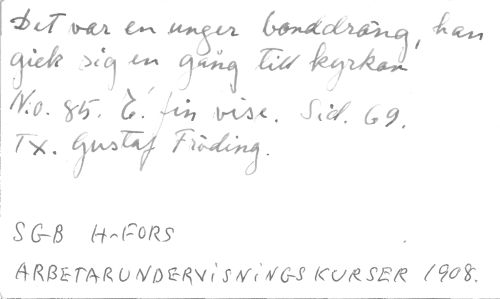 Det var en unger bonddräng, han
gick sig en gång till kyrkan
N:o. 85. E. fin vise. Sid. 69.
TX. Gustaf Fröding.
SGB H-FORS
ARBETARUNDERVISNINGSKURSER 1908.